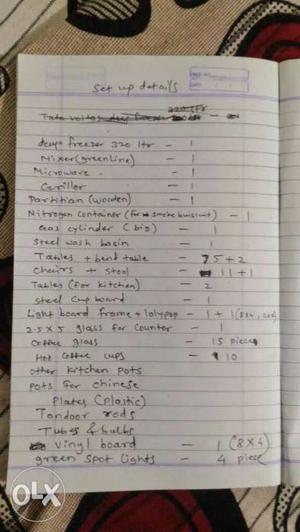 Set up details
320 ltr
Tata voltas deep freezer
deep freezer 320 ltr - 1
Mixer (greenline) - 1
Microwave - 1
Griller - 1
Partition (wooden) - 1
Nitrogen container (for smoke buiscuit) - 1
Gas cylinder (big) - 1
Steel wash basin - 1
Tables + bend table - 5 + 2
Chairs + stool - 11 + 1
Tables (for kitchen) - 2
steel cup board - 1
Light board frame + lolypop - 1 + 1 (8x4, 2x2)
2.5 x 5 glass for counter - 1
Coffee glass - 15 piece
Hot coffee cups - 10
other kitchen pots
pots for chinese
Plates (plastic)
Tandoor rods
Tubes & bulbs
vinyl board - 1 (8x4)
green spot lights - 4 piece
OLX